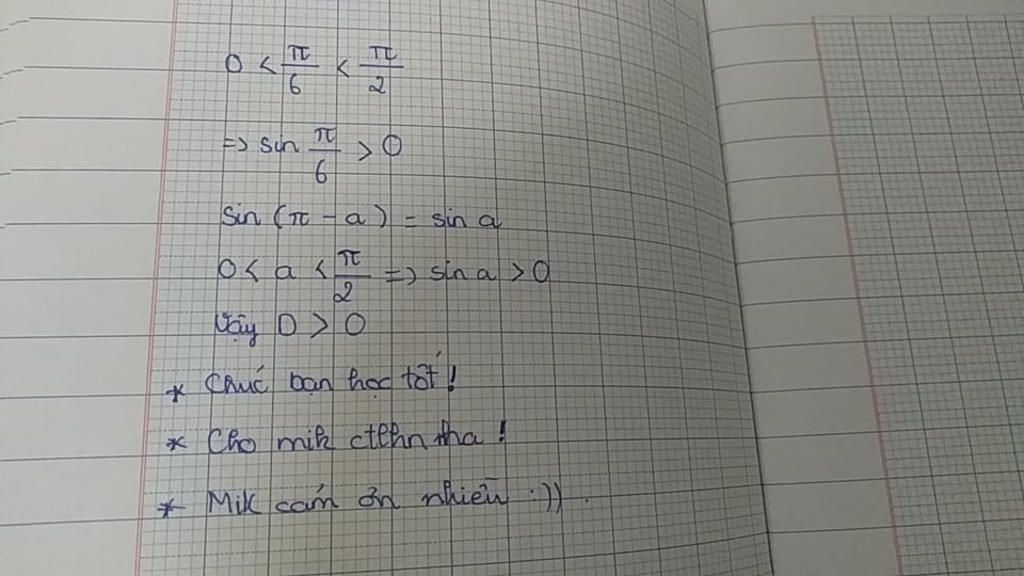 0 < π/6 < π/2
=> sin π/6 > 0
Sin (π - a) = sin a
0 < a < π/2 => sin a > 0
Vậy D > 0
* Chúc bạn học tốt!
* Cho mik ctlhn nha!
* Mik cám ơn nhiều :)).